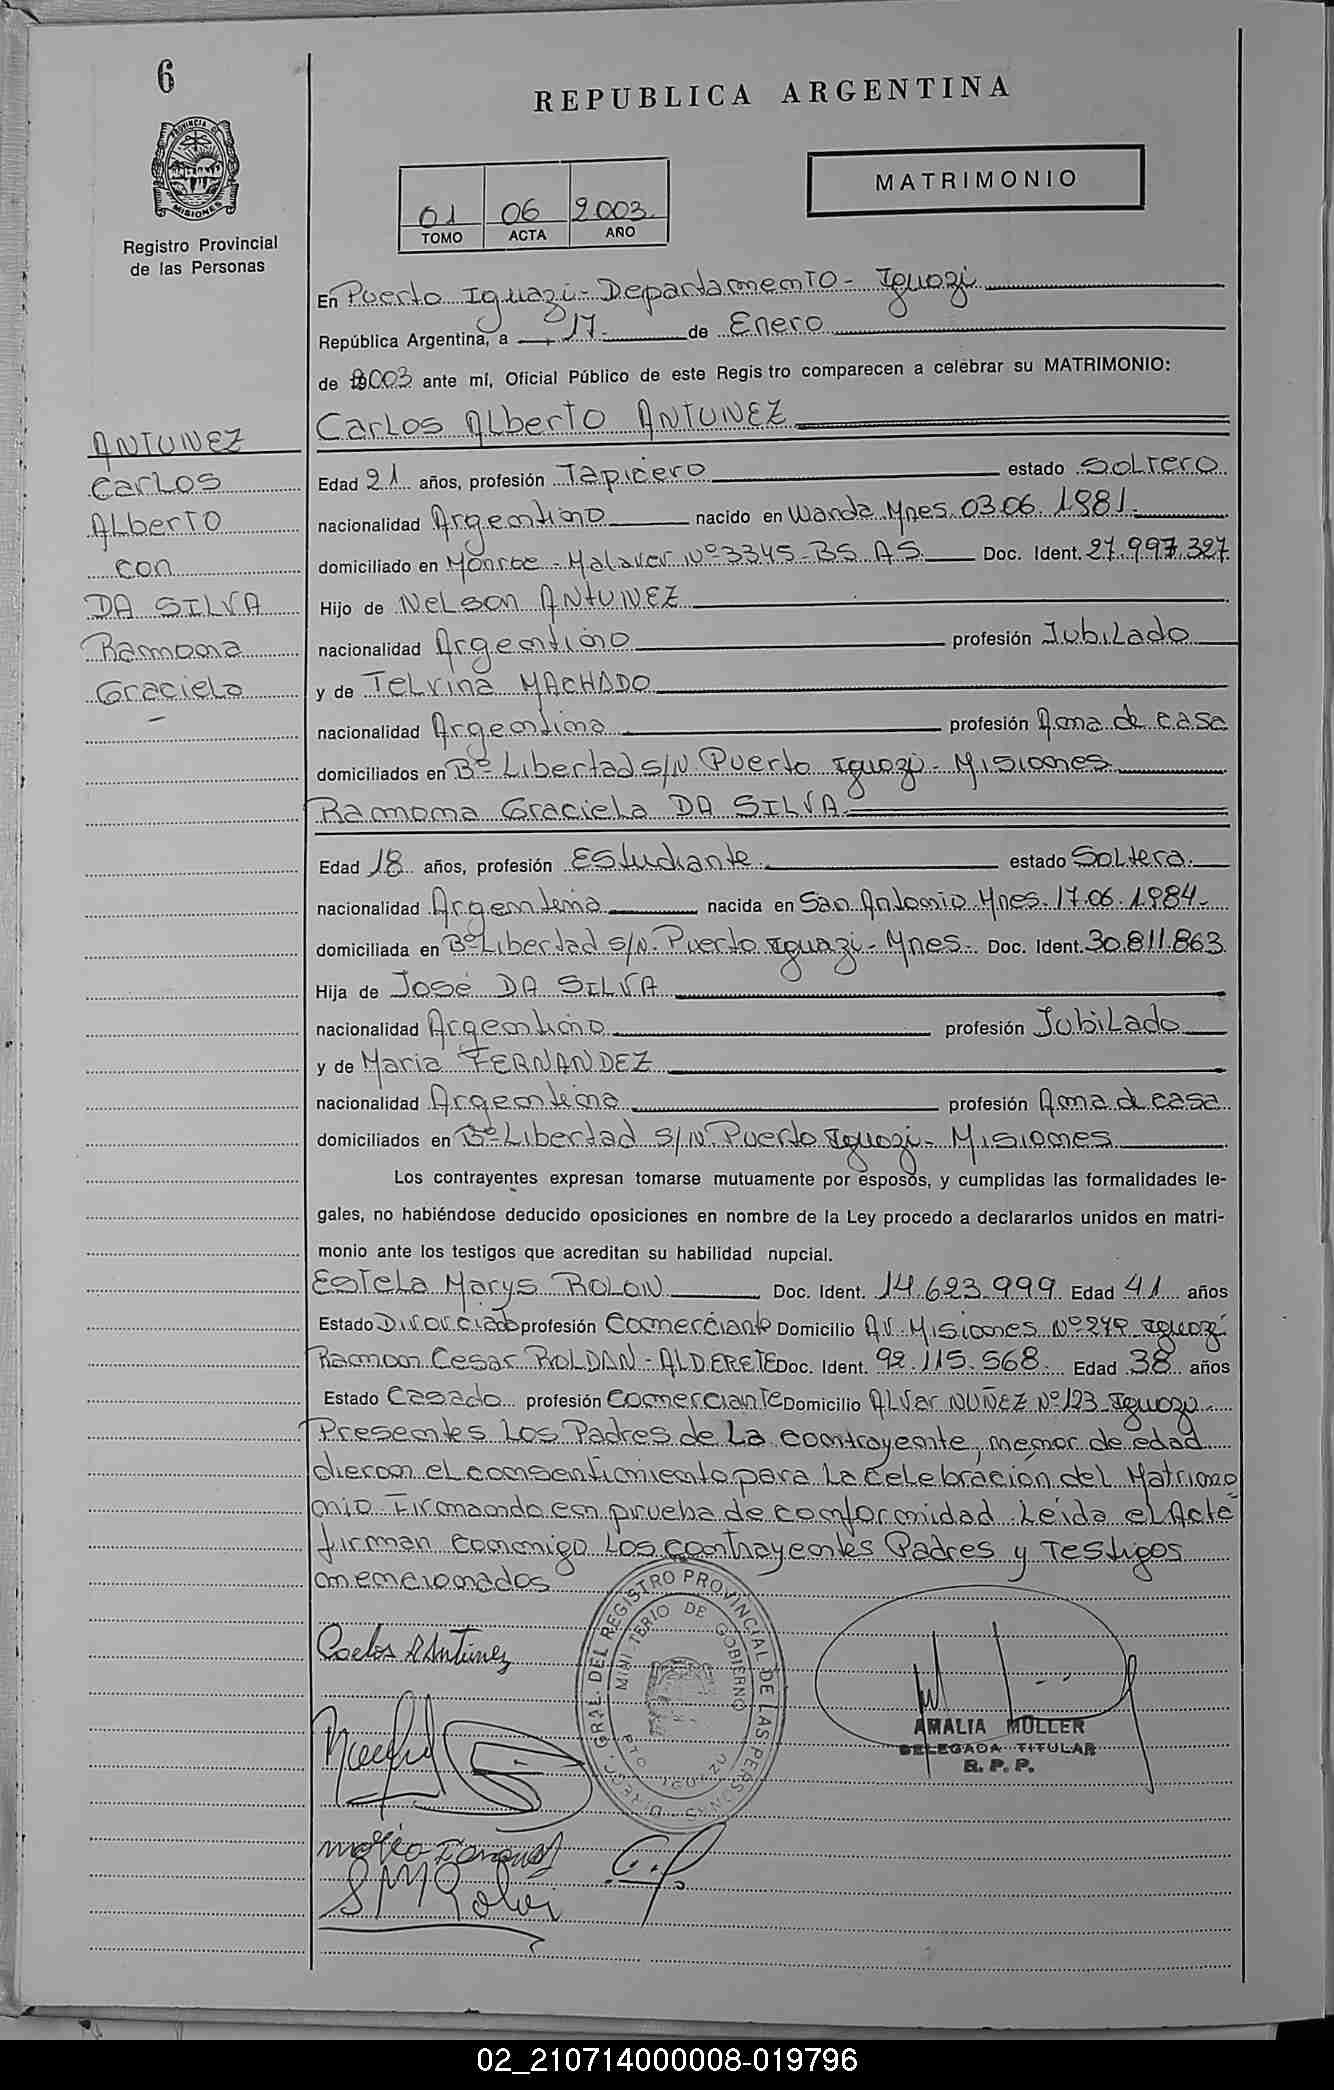 6
REPUBLICA ARGENTINA
PROVINCIA DE
MISIONES
MATRIMONIO
01 06 2003
TOMO ACTA AÑO
Registro Provincial
de las Personas
En Puerto Iguazú - Departamento - Iguazú
República Argentina, a 17 de Enero
de 2003 ante mí, Oficial Público de este Registro comparecen a celebrar su MATRIMONIO:
Carlos Alberto ANTUNEZ
ANTUNEZ
Carlos
Alberto
con
DA SILVA
Ramona
Graciela
Edad 21 años, profesión Tapicero estado Soltero
nacionalidad Argentino nacido en Wanda Mnes. 03.06.1981.
domiciliado en Monroe - Malaver Nº 3345 - BS. AS. Doc. Ident. 27.997.327
Hijo de Nelson ANTUNEZ
nacionalidad Argentino profesión Jubilado
y de Telvina MACHADO
nacionalidad Argentina profesión Ama de casa
domiciliados en Bº Libertad s/N Puerto Iguazú - Misiones
Ramona Graciela DA SILVA
Edad 18 años, profesión Estudiante estado Soltera.
nacionalidad Argentina nacida en San Antonio Mnes. 17.06.1984-
domiciliada en Bº Libertad s/N. Puerto Iguazú - Mnes. Doc. Ident. 30.811.863
Hija de José DA SILVA
nacionalidad Argentino profesión Jubilado
y de Maria FERNANDEZ
nacionalidad Argentina profesión Ama de casa
domiciliados en Bº Libertad s/N Puerto Iguazú - Misiones
Los contrayentes expresan tomarse mutuamente por esposos, y cumplidas las formalidades le-
gales, no habiéndose deducido oposiciones en nombre de la Ley procedo a declararlos unidos en matri-
monio ante los testigos que acreditan su habilidad nupcial.
Estela Marys ROLON Doc. Ident. 14.623.999 Edad 41 años
Estado Divorciado profesión Comerciante Domicilio AV. Misiones Nº Iguazú
Ramon Cesar ROLDAN - ALDERETE Doc. Ident. 92.115.568. Edad 38 años
Estado Casado profesión Comerciante Domicilio Alvar NUÑEZ Nº 123 Iguazú
Presentes Los Padres de La contrayente, menor de edad
dieron el consentimiento para La celebración del Matrimo
nio Firmando en prueba de conformidad. Leída el Acta
firman conmigo Los contrayentes Padres y Testigos
mencionados
Carlos A Antunez
DIREC. GRAL. DEL REGISTRO PROVINCIAL DE LAS PERSONAS
MINISTERIO DE GOBIERNO
PTO IGUAZU
AMALIA MULLER
DELEGADA TITULAR
R. P. P.
02_210714000008-019796